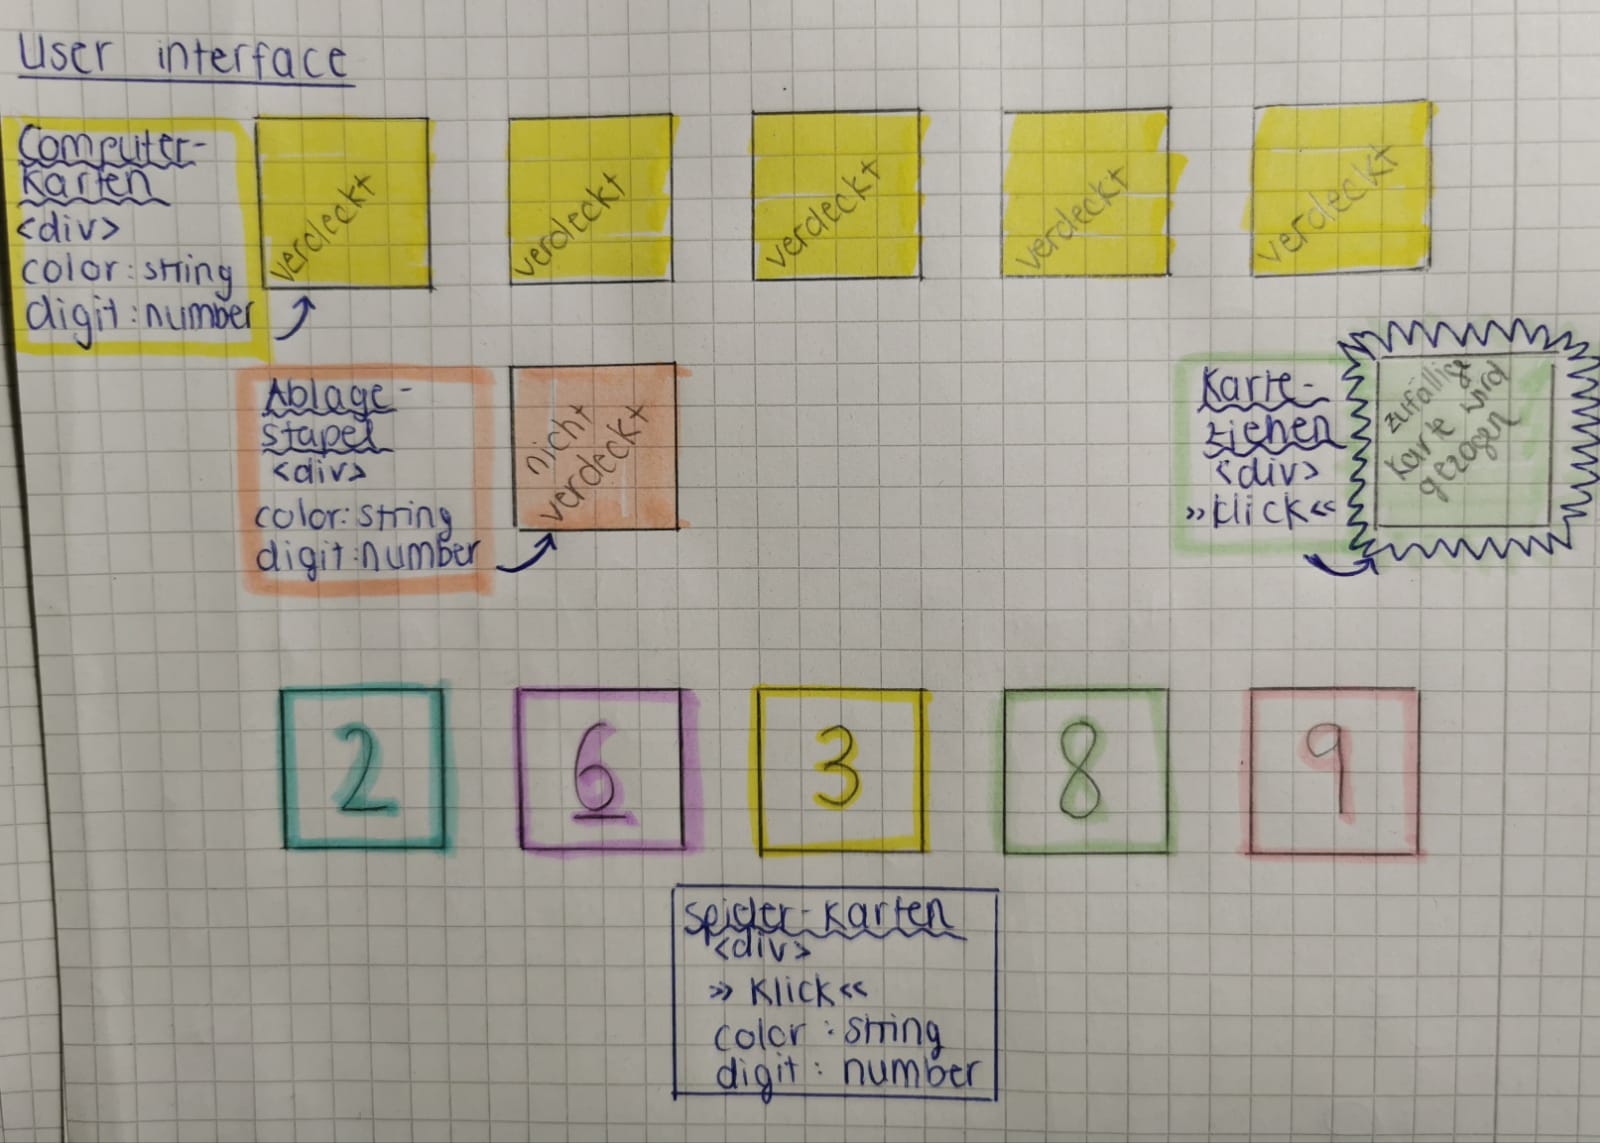 User interface
Computer-
Karten
<div>
color: string
digit: number
verdeckt
verdeckt
verdeckt
verdeckt
verdeckt
Ablage-
stapel
<div>
color: string
digit: number
nicht
verdeckt
Karte-
ziehen
<div>
»Klick«
zufällige
Karte wird
gezogen
2
6
3
8
9
Spieler-Karten
<div>
»Klick«
color: string
digit: number